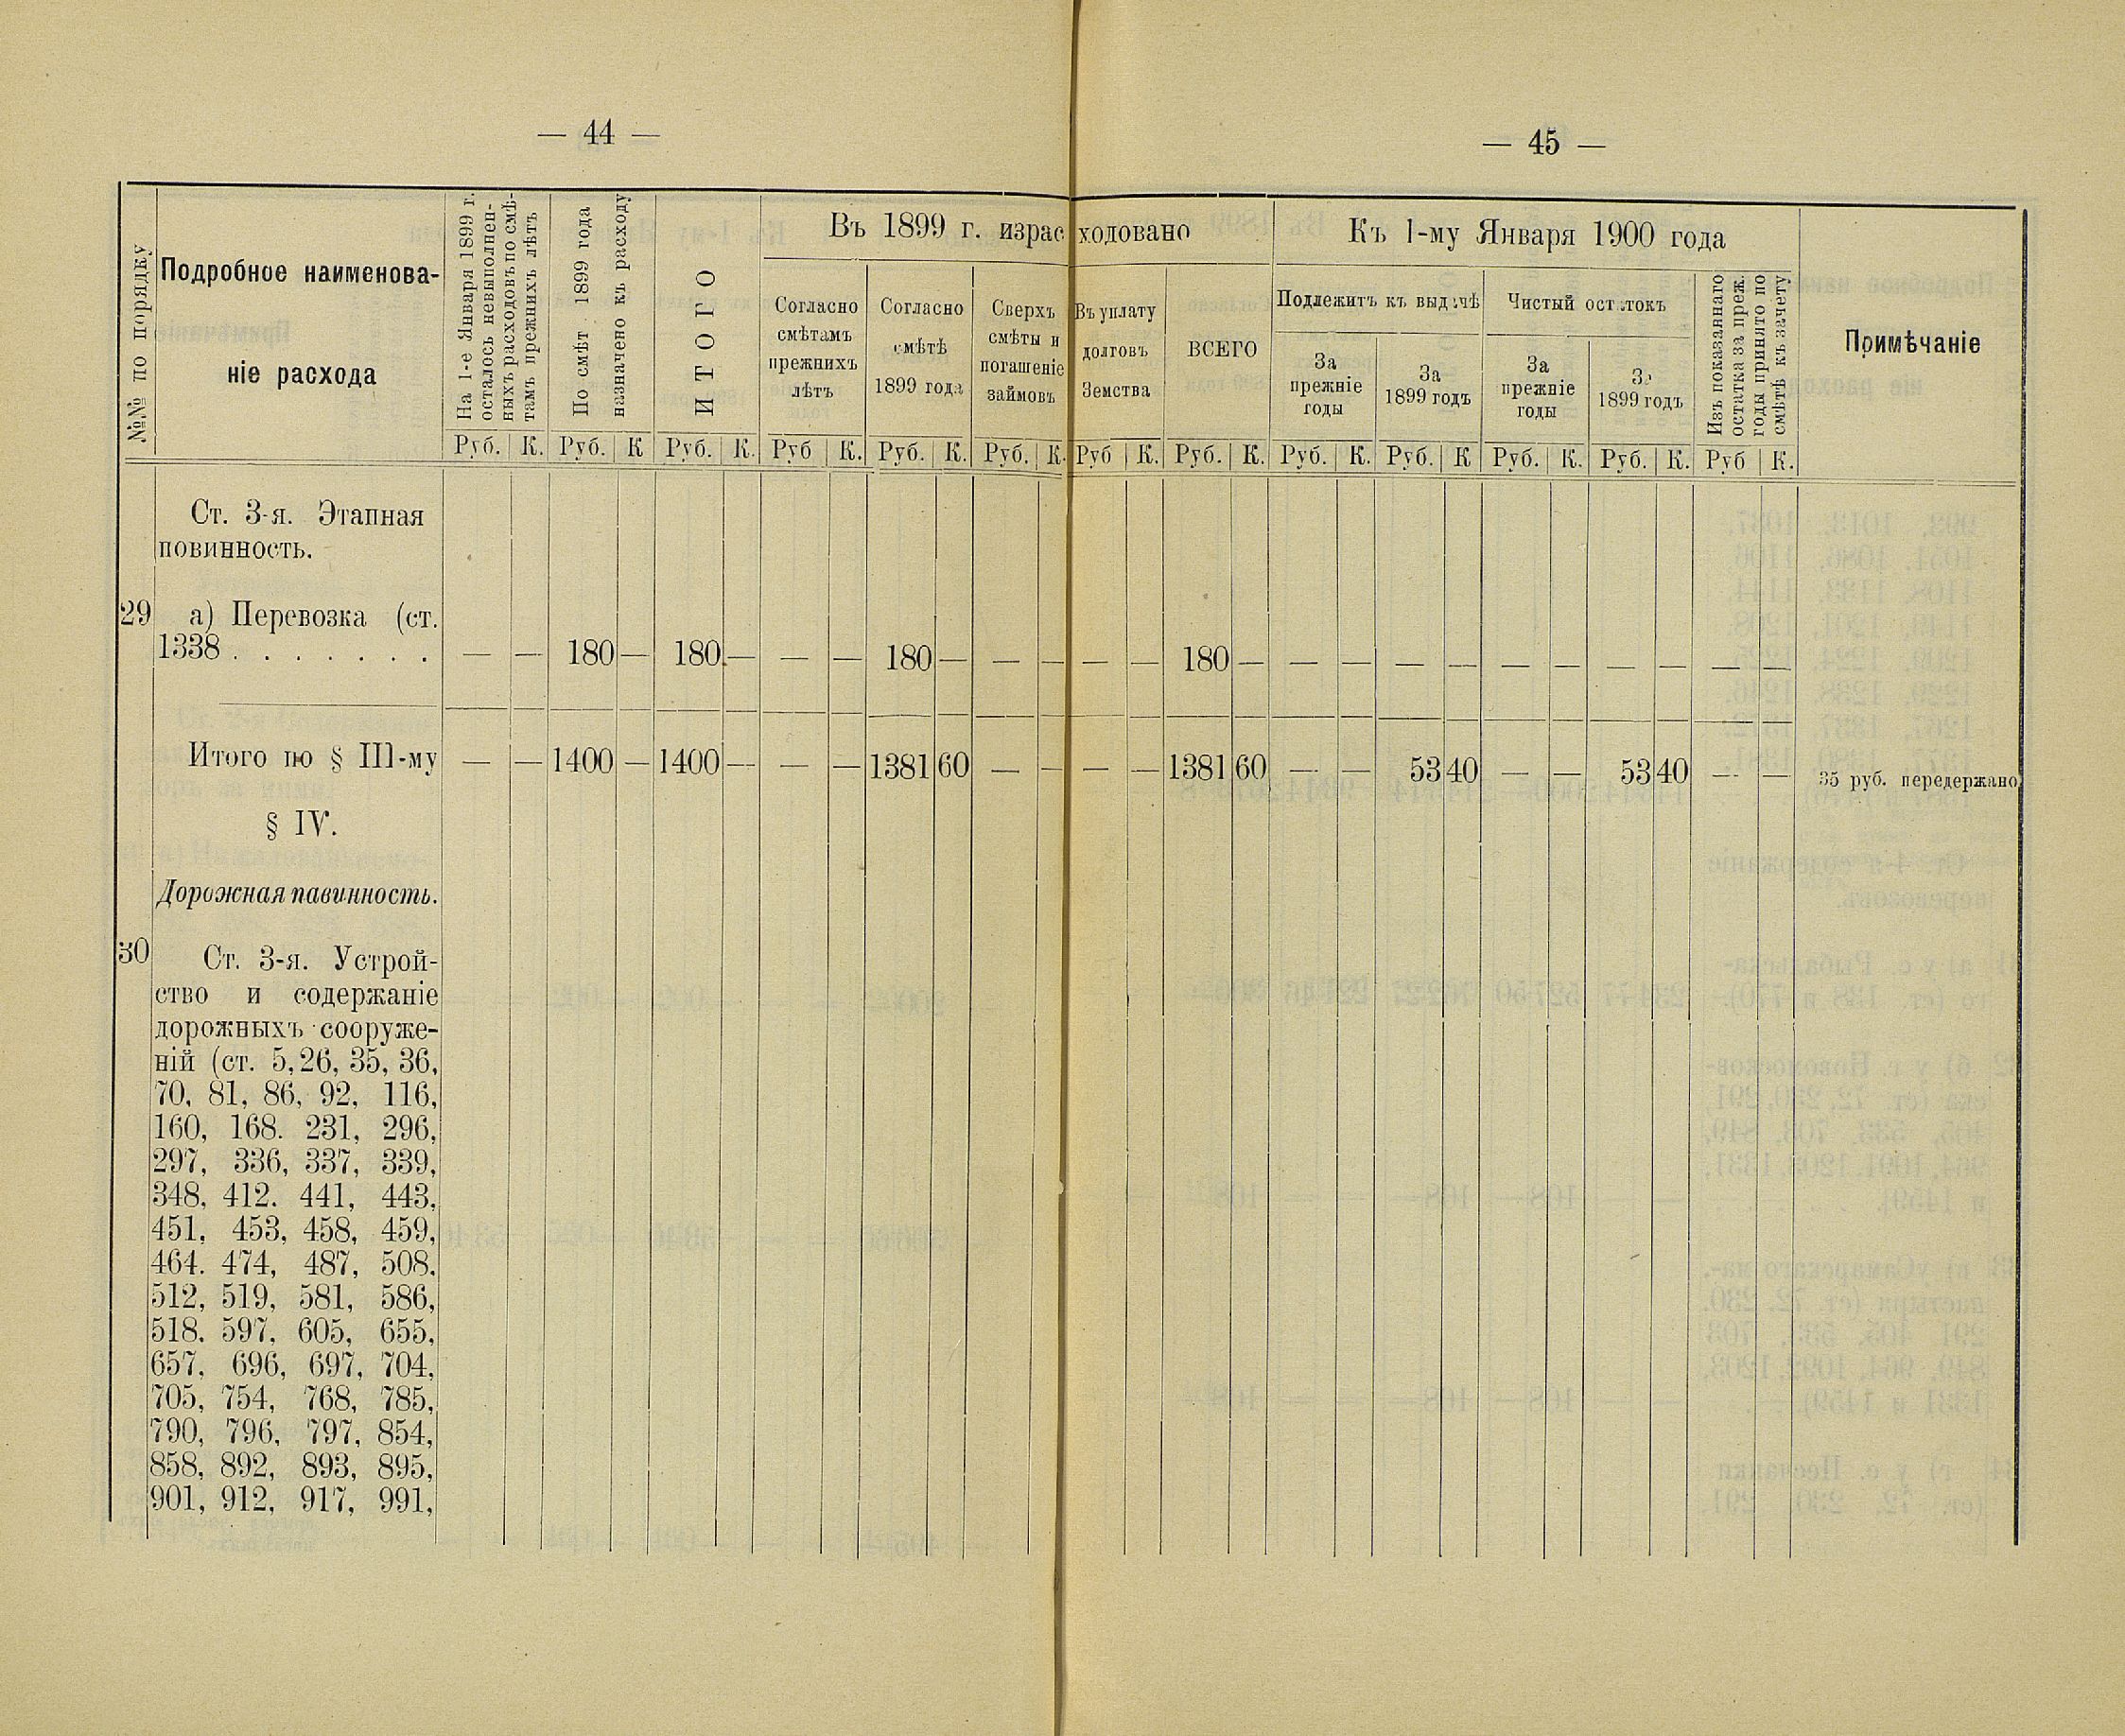 — 44 —
— 45 —
№№ по порядку
Подробное наименова-
ніе расхода
На 1-е Января 1899 г.
осталось невыполнен-
ныхъ расходовъ по смѣ-
тамъ прежнихъ лѣтъ
По смѣт 1899 года
назначено къ расходу
ИТОГО
Въ 1899 г. израсходовано
Согласно
смѣтамъ
прежнихъ
лѣтъ
Согласно
смѣтѣ
1899 года
Сверхъ
смѣты и
погашеніе
займовъ
Въ уплату
долговъ
Земства
ВСЕГО
Къ 1-му Января 1900 года
Подлежитъ къ выд чѣ
За
прежніе
годы
За
1899 годъ
Чистый ост токъ
За
прежніе
годы
За
1899 годъ
Изъ показаннаго
остатка за преж.
годы принято по
смѣтѣ къ зачету
Примѣчаніе
Руб. К. Руб. К Руб. К. Руб К. Руб. К. Руб. К. Руб К. Руб. К. Руб. К. Руб. К Руб. К. Руб. К. Руб К.
Ст. 3-я. Этапная
повинность.
29 а) Перевозка (ст.
1338 . . . . . . . — — 180 — 180 — — — 180 — — — — — 180 — — — — — — — — — — —
Итого по § III-му — — 1400 — 1400 — — — 1381 60 — — — — 1381 60 — — 53 40 — — 53 40 — — 35 руб. передержано
§ IV.
Дорожная павинность.
30 Ст. 3-я. Устрой-
ство и содержаніе
дорожныхъ сооруже-
ній (ст. 5, 26, 35, 36,
70, 81, 86, 92, 116,
160, 168. 231, 296,
297, 336, 337, 339,
348, 412. 441, 443,
451, 453, 458, 459,
464. 474, 487, 508.
512, 519, 581, 586,
518. 597. 605, 655,
657, 696, 697, 704,
705, 754, 768, 785,
790, 796, 797, 854,
858, 892, 893, 895,
901, 912, 917, 991,